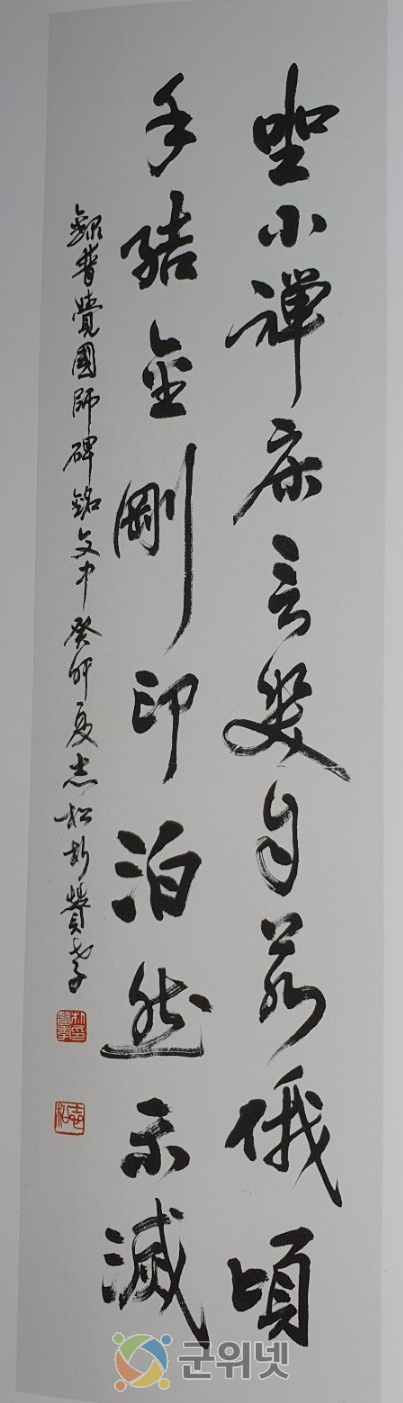 坐小禪床言笑自若俄頃
手結金剛印泊然示滅
錄普覺國師碑銘文中 癸卯夏 志松朴贊孝
군위넷